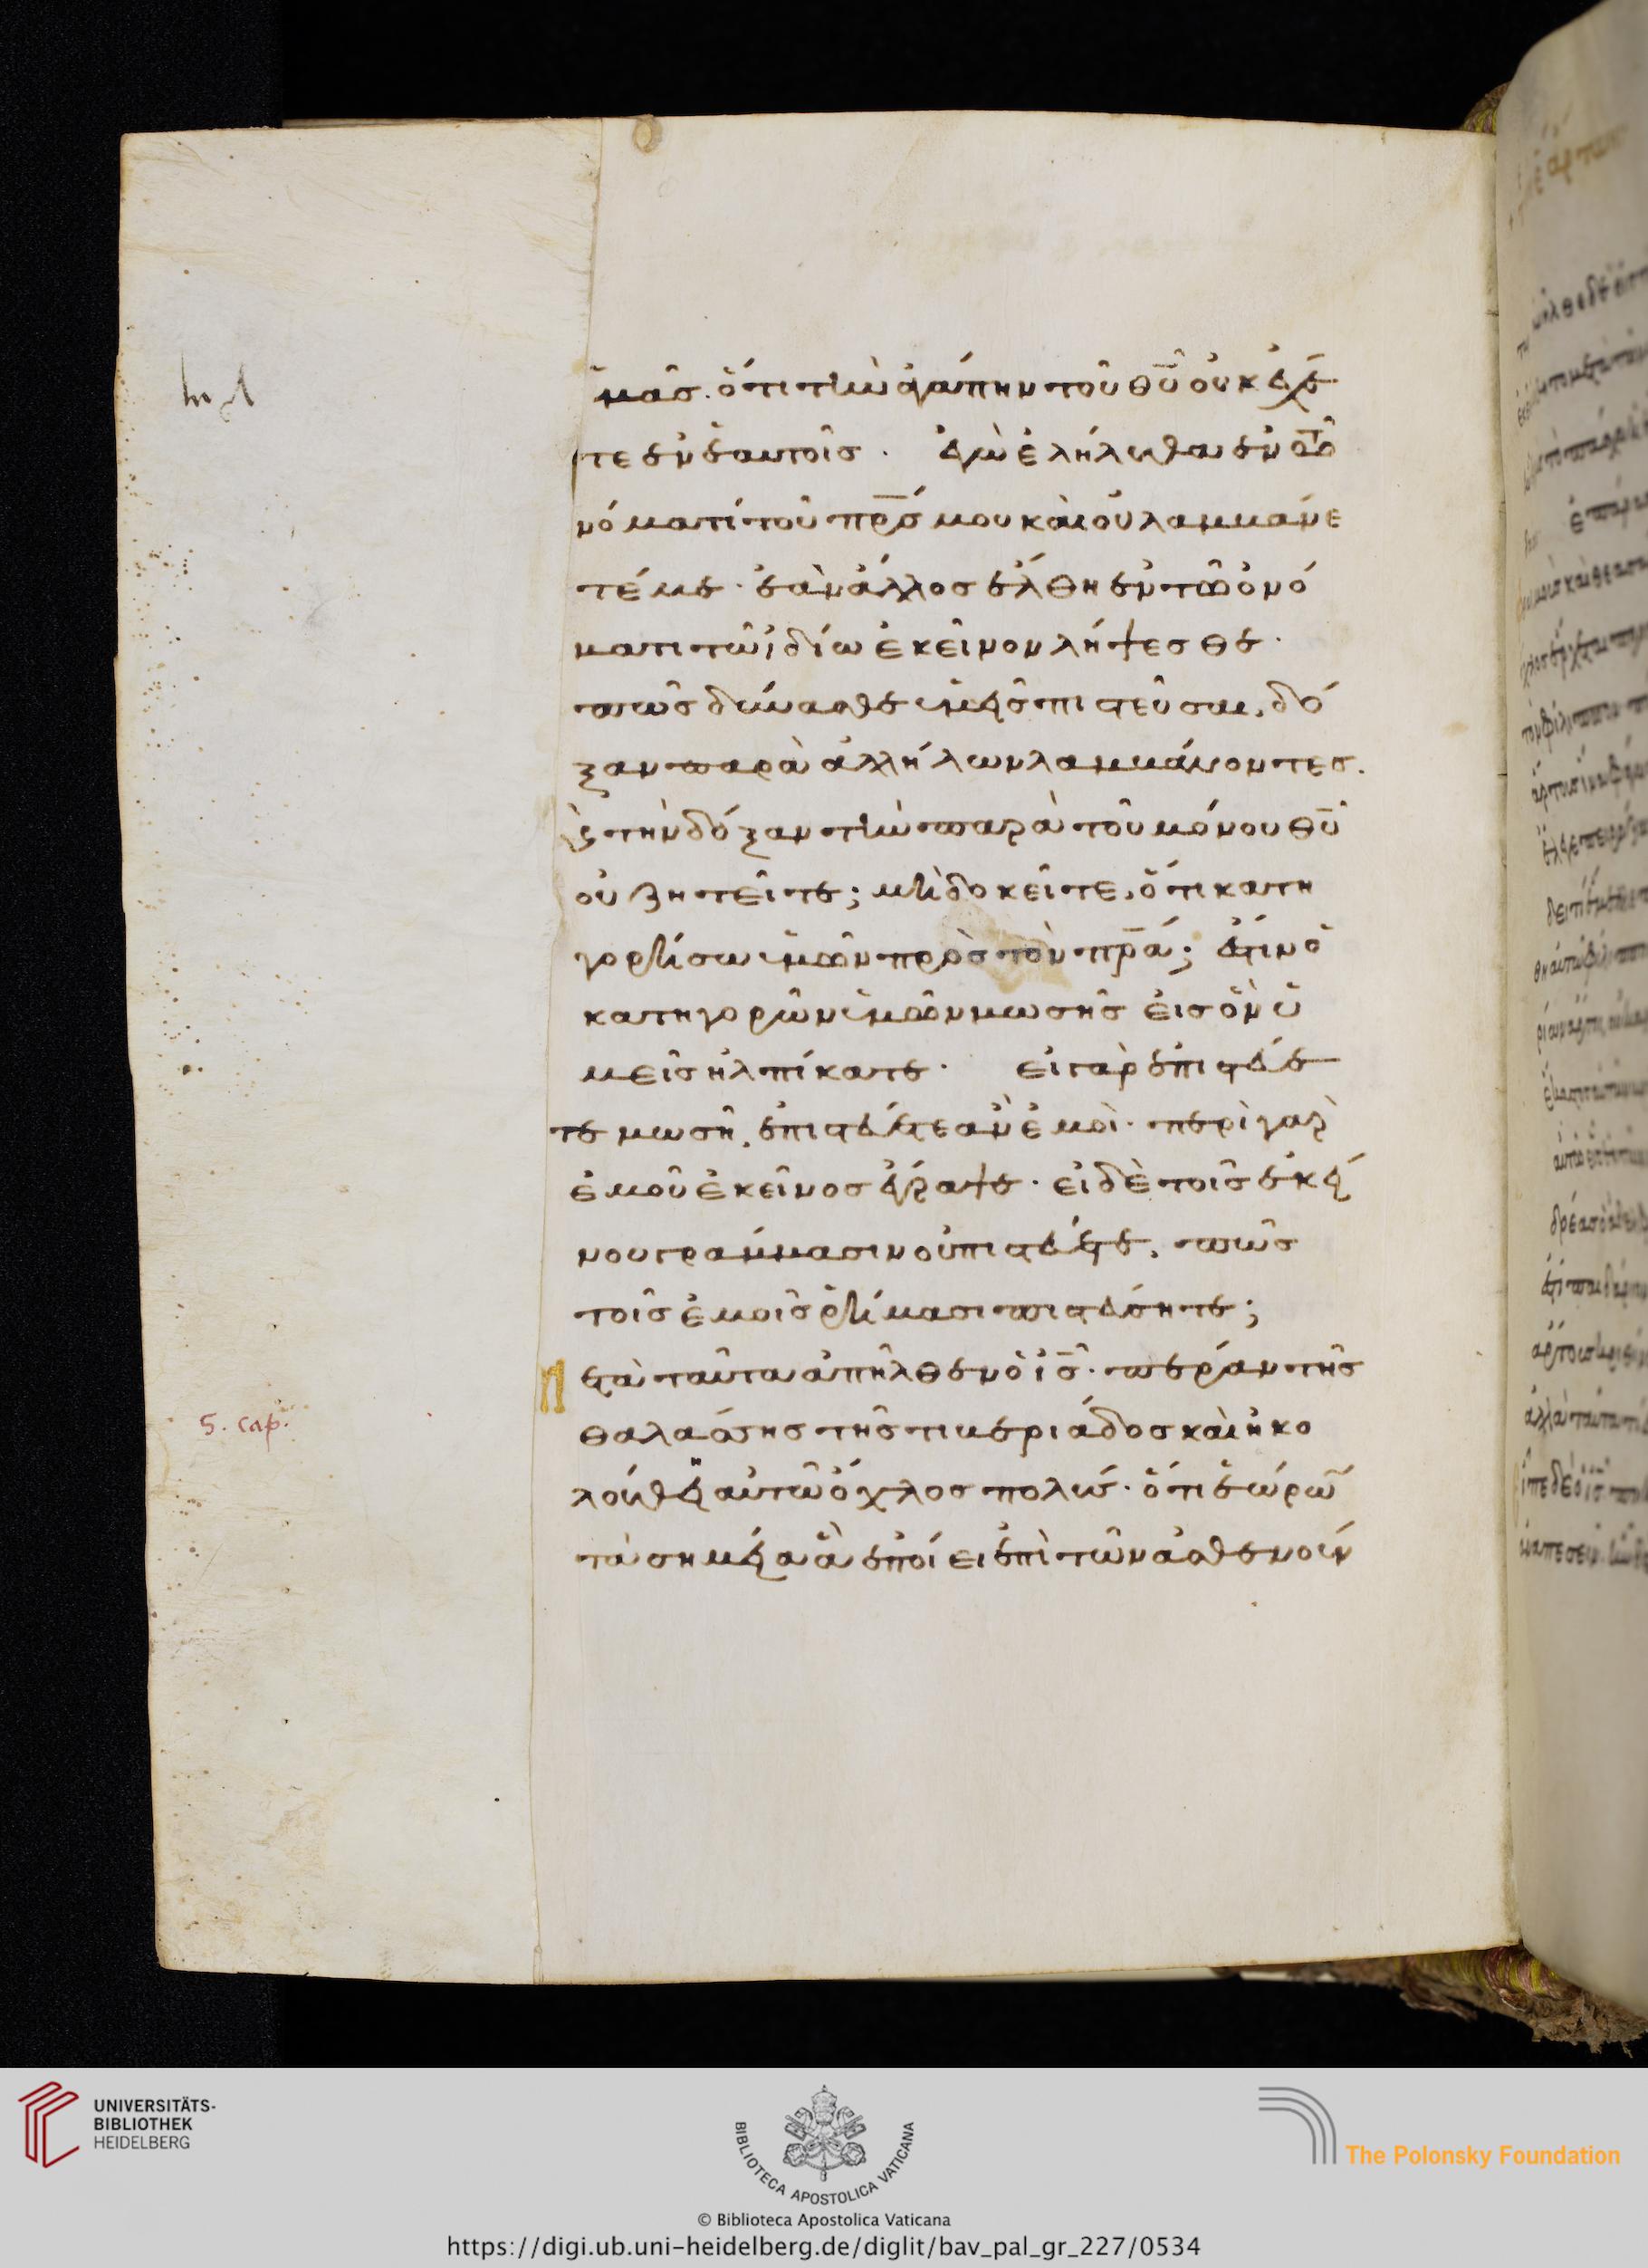 ὑμᾶσ. ὅτι τὴν ἀγάπην τοῦ θῡ οὐκ ἔχε
τε ἐν ἑαυτοῖσ. ἐγὼ ἐλήλυθα ἐν τῶ ὀ
νόματί τοῦ πρ̅σ μου καὶ οὐ λαμβάνε
τέ με· ἐὰν ἄλλοσ ἔλθη ἐν τῶ ὀνό
ματι τῶ ἰδίω ἐκεῖνον λήψεσθε·
πῶσ δύνασθε ὑμεῖσ πιστεῦσαι, δό
ξαν παρὰ ἀλλήλων λαμβάνοντεσ.
κ̀ τὴν δόξαν τὴν παρὰ τοῦ μόνου θῡ
οὐ ζητεῖτε; μὴ δοκεῖτε, ὅτι κατη
γορήσω ὑμῶν πρὸσ τὸν πρ̅α; ἔστιν ὁ
κατηγορῶν ὑμῶν μωσῆσ εἰσ ὃν ὑ
μεῖσ ἠλπίκατε· εἰ γὰρ ἐπιστεύε
τε μωσῆ, ἐπιστεύετε ἂν ἐμοὶ· περὶ γὰρ
ἐμοῦ ἐκεῖνοσ ἔγραψε· εἰ δὲ τοῖσ ἐκεί
νου γράμμασιν οὐ πιστεύετε, πῶσ
τοῖσ ἐμοῖσ ῥήμασι πιστεύσητε;
Μετὰ ταῦτα ἀπῆλθεν ὁ ἰ̅σ· πέραν τῆσ
θαλάσσησ τῆσ τιβεριάδοσ καὶ ἠκο
λούθει αὐτῶ ὄχλοσ πολύσ· ὅτι ἑώρων
τὰ σημεῖα ἃ ἐποίει ἐπὶ τῶν ἀσθενούν
5. cap.
UNIVERSITÄTS-
BIBLIOTHEK
HEIDELBERG
BIBLIOTECA APOSTOLICA VATICANA
The Polonsky Foundation
© Biblioteca Apostolica Vaticana
https://digi.ub.uni-heidelberg.de/diglit/bav_pal_gr_227/0534